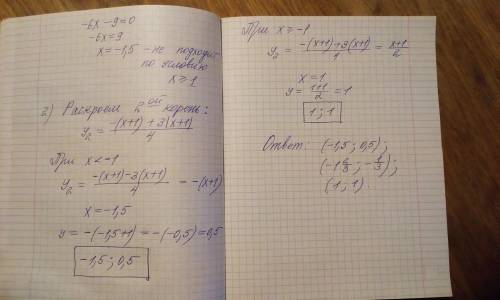 -6x - 9 = 0
-6x = 9
x = -1,5 - не подходит
по условию
x ≥ 1
2) Раскроем 2ой корень:
y₂ = -(x+1) + 3(x+1) / 4
При x < -1
y₂ = -(x+1) - 3(x+1) / 4 = -(x+1)
x = -1,5
y = -(-1,5+1) = -(-0,5) = 0,5
-1,5 ; 0,5
При x ≥ -1
y₂ = -(x+1) + 3(x+1) / 4 = x+1 / 2
x = 1
y = 1+1 / 2 = 1
1 ; 1
Ответ: (-1,5 ; 0,5);
(1 ; 1)